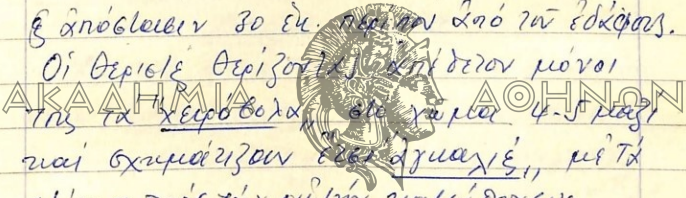 ἀπόστασιν 30 ἑκ. περίπου ἀπό τοῦ ἐδάφους.
Οἱ θεριστέ θερίζοντας ἀπέθετον μόνοι
ΑΚΑΔΗΜΙΑ ΑΘΗΝΩΝ
τως τά "χειρόβολα" στό χῶμα 4-5 μαζί
καί σχημάτιζαν ἔτσι "ἀγκαλιές" με τά